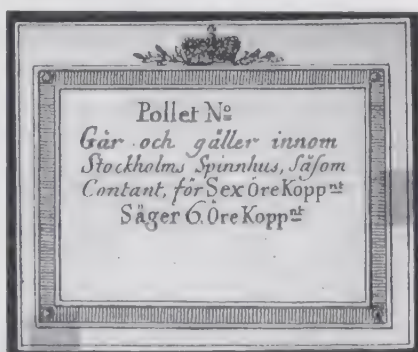 Pollet Nº
Går och gäller innom
Stockholms Spinnhus, såsom
Contant, för Sex Öre Kopp.nt
Säger 6. Öre Kopp.nt